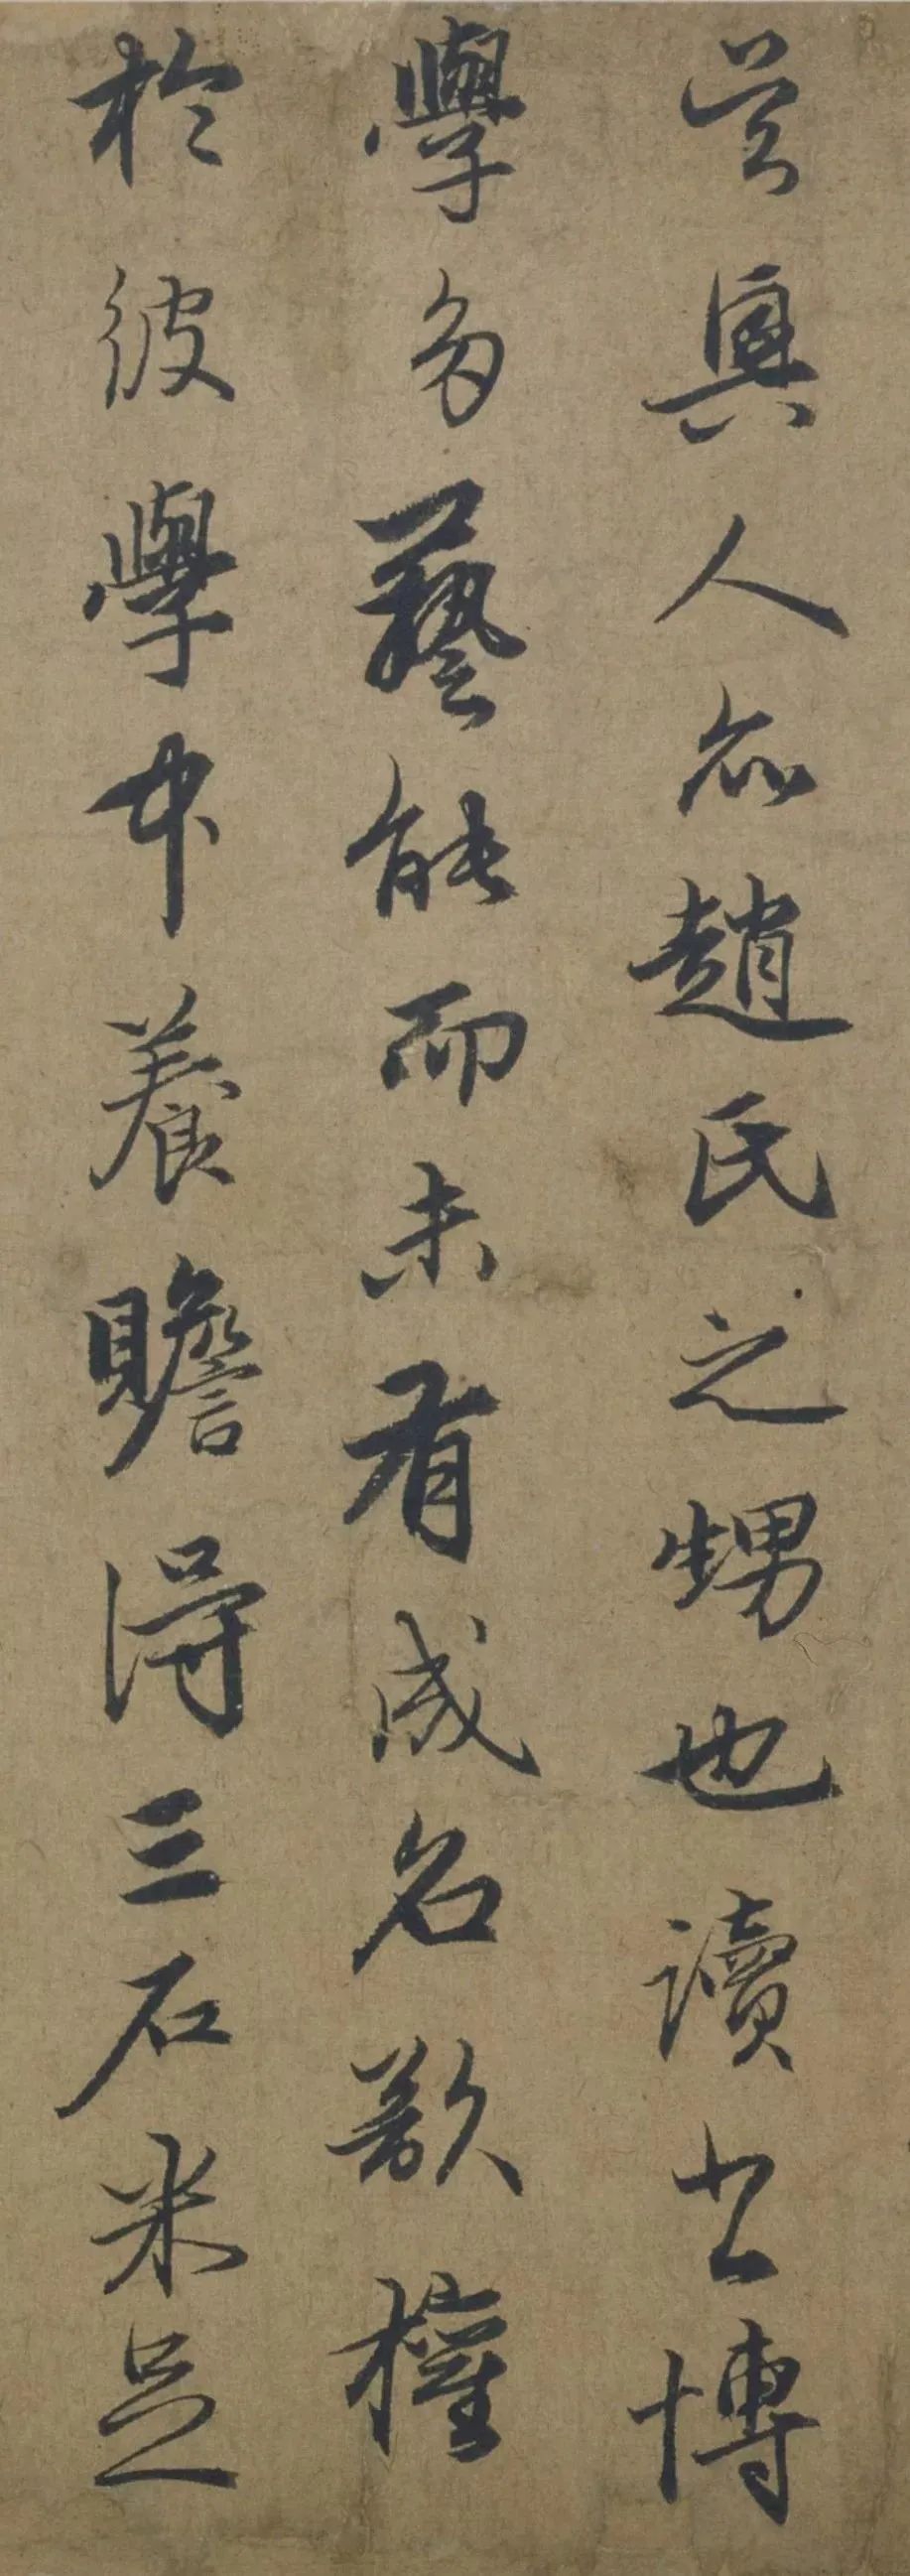 吳興人亦趙氏之甥也讀書博
學多藝能而未有成名欲權
於彼學中養贍得三石米足